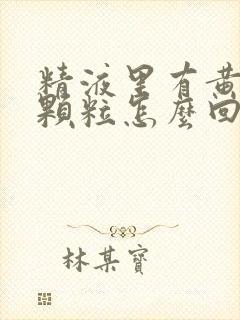 精液里有黄
颗粒怎麼回
林某寳